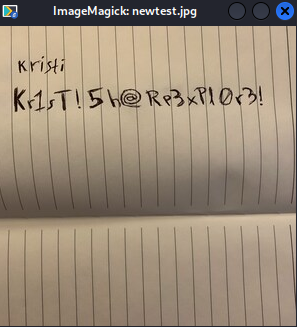 ImageMagick: newtest.jpg
Kristi
Kr1sT!5h@Rp3xPl0r3!